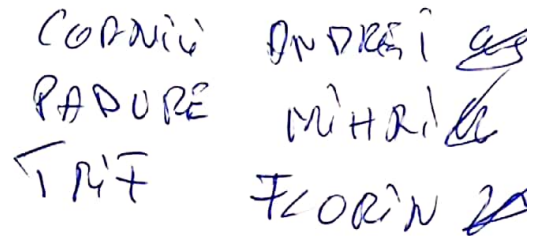 CORNII ANDREI
PADURE MIHRI
TRIF FLORIN